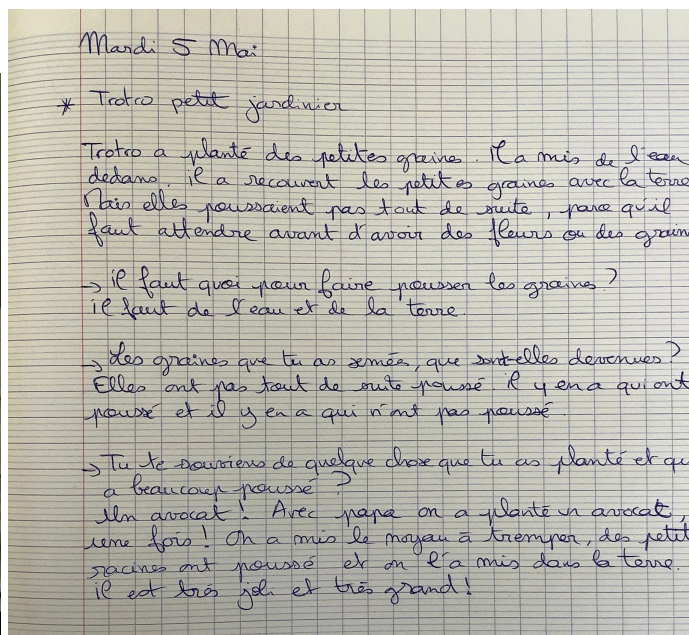 Mardi 5 Mai
* Trotro petit jardinier
Trotro a planté des petites graines. Il a mis de l'eau
dedans, il a recouvert les petites graines avec la terre
Mais elles poussaient pas tout de suite, parce qu'il
faut attendre avant d'avoir des fleurs ou des grain
→ il faut quoi pour faire pousser les graines ?
il faut de l'eau et de la terre.
→ Les graines que tu as semées, que sont-elles devenues ?
Elles ont pas tout de suite poussé. Il y en a qui ont
poussé et il y en a qui n'ont pas poussé.
→ Tu te souviens de quelque chose que tu as planté et qu
a beaucoup poussé ?
Un avocat ! Avec papa on a planté un avocat,
une fois ! On a mis le noyau à tremper, des petit
racines ont poussé et on l'a mis dans la terre.
il est très joli et très grand !